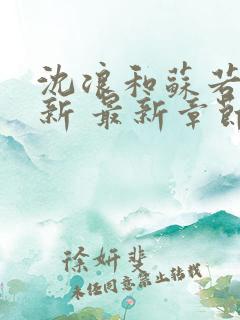 沈浪和蘇若
新 最新章節
徐妍斐
未经同意禁止转载